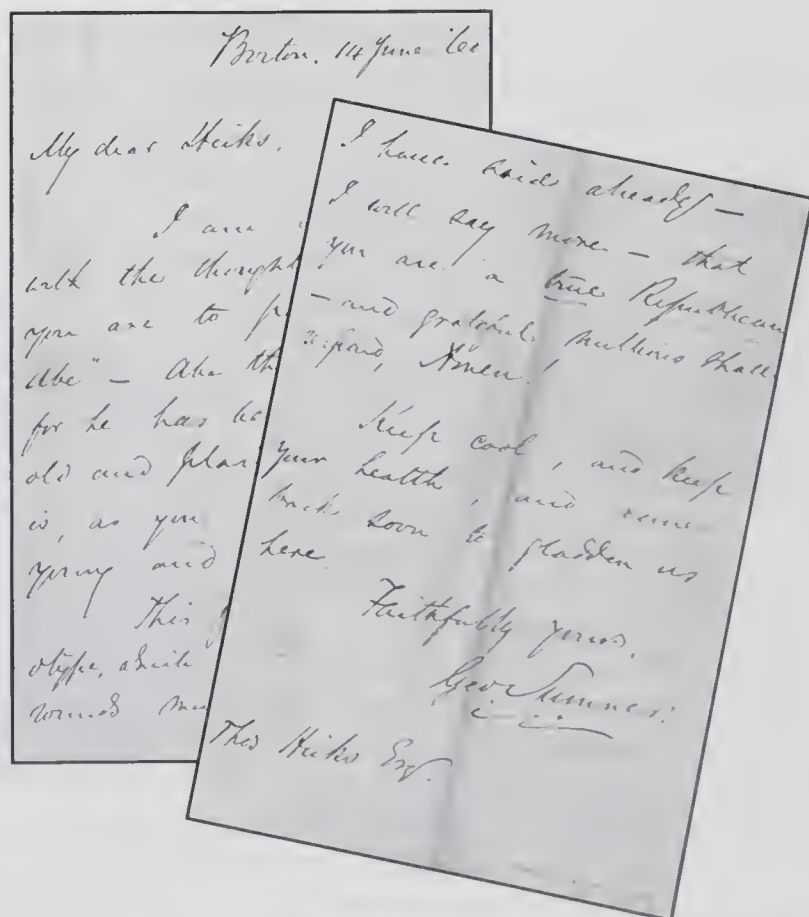 Boston, 14 June '60
My dear Hicks,
I am
with the thought
you are to
Abe" — Abe the
for he has
old and
is, as you
young and
This
otype, which
wounds
I have said already —
I will say more — that
you are a true Republican
— and grateful millions shall
respond, Amen!
Keep cool, and keep
your health, and come
back soon to gladden us
here
Faithfully yours,
Geo Sumner.
Thos Hicks Esq.